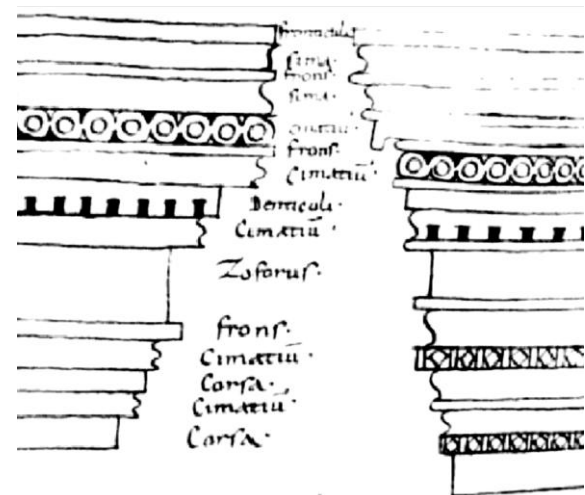 fronticuli
sima
frons
sima
Cimatiū
frons.
Cimatiū
Denticuli.
Cimatiū.
Zoforus.
frons.
Cimatiū.
Corsa.
Cimatiū.
Corsa.